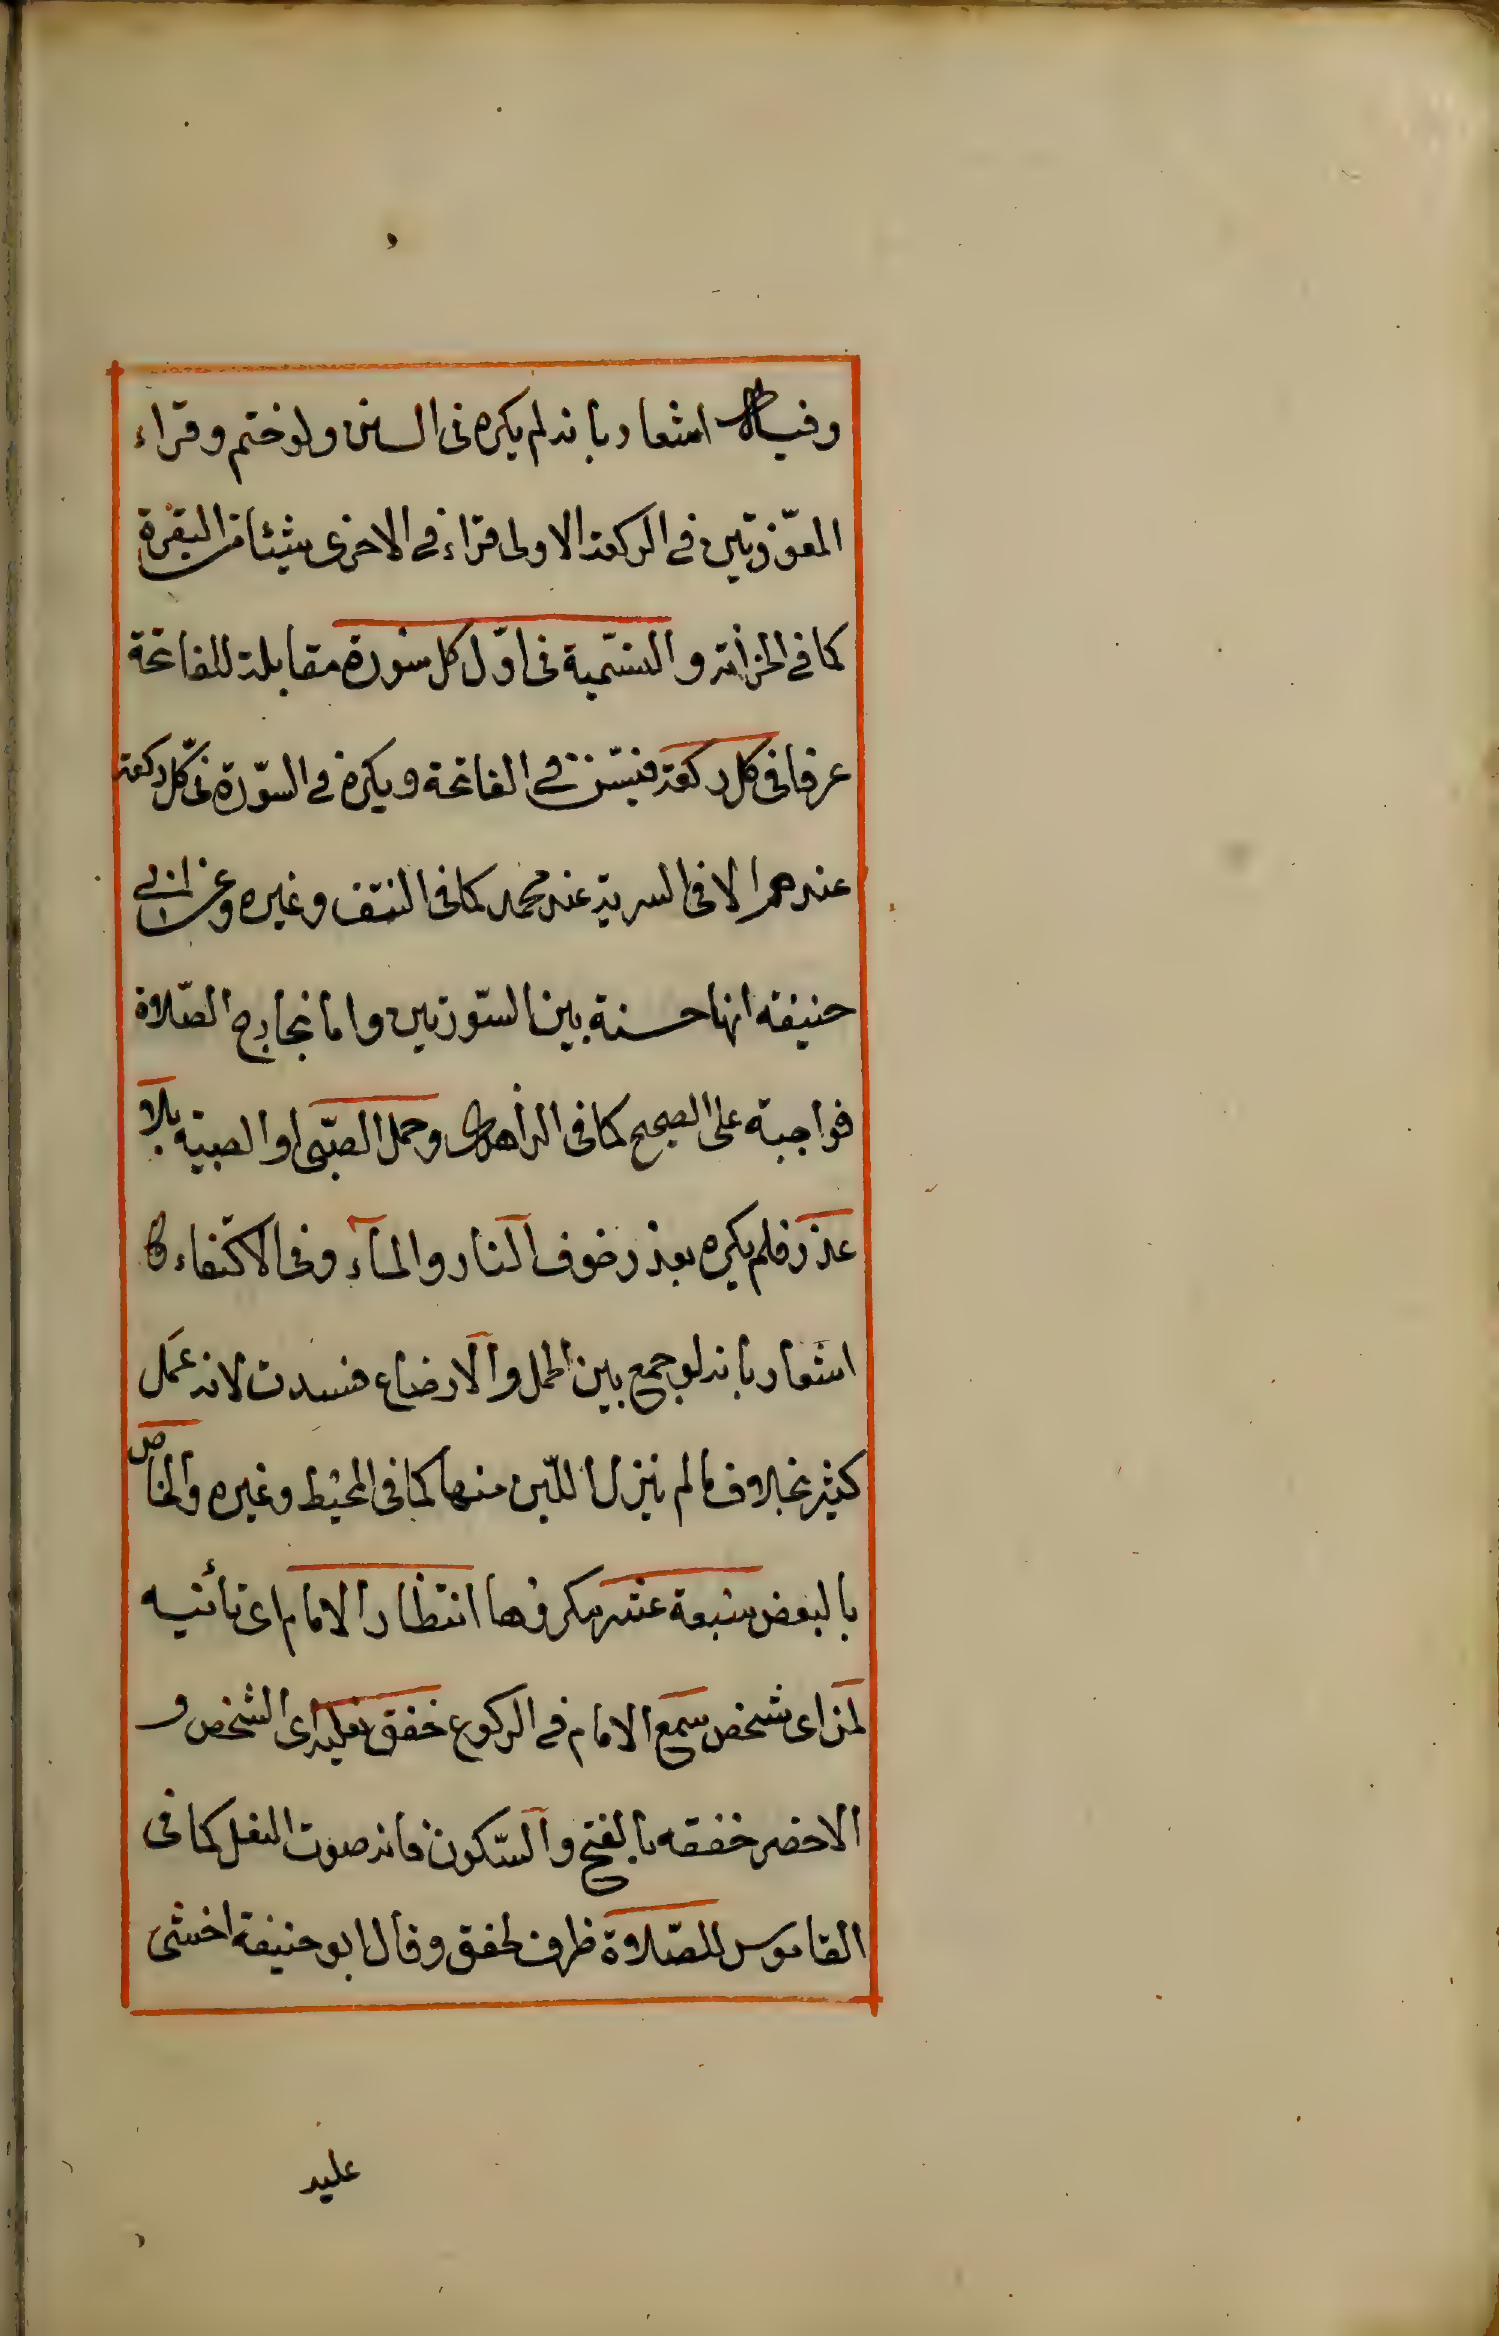 وفيه اشعار بانه لم يكره فى السنن ولو ختم وقراء
المعوّذتين فى الركعة الاولى قراء فى الاخرى شيئا من البقرة
كما فى الخزانة والتسمية فى اوّل كل سورة مقابلة للفاتحة
عرفا فى كل ركعة فتسنّ فى الفاتحة ويكره فى السّورة فى كلّ ركعة
عندهما الا فى السرية عند محمد كما فى النتف وغيره وعن ابى
حنيفه انها حسنة بين السّورتين واما بخارج الصّلاة
فواجبة على الصحيح كما فى الزاهدى وحمل الصّبى او الصبيّة بلا
عذر فلم يكره بعذر خوف النار والمآء وفى الاكتفاء
اشعار بانه لو جمع بين الحمل والارضاع فسدت لانه عمل
كثير بخلاف ما لم ينزل اللّبن منها كما فى المحيط وغيره والخاص
بالبعض سبعة عشر مكروها انتظار الامام اى تأنيه
لمن اى شخص سمع الامام فى الركوع خفق نعليه اى الشخص و
الاخصر خفقه بالفتح والسّكون فانه صوت النعل كما فى
القاموس للصّلاوة ظرف لخفق وقال ابو حنيفة اخشى
عليه